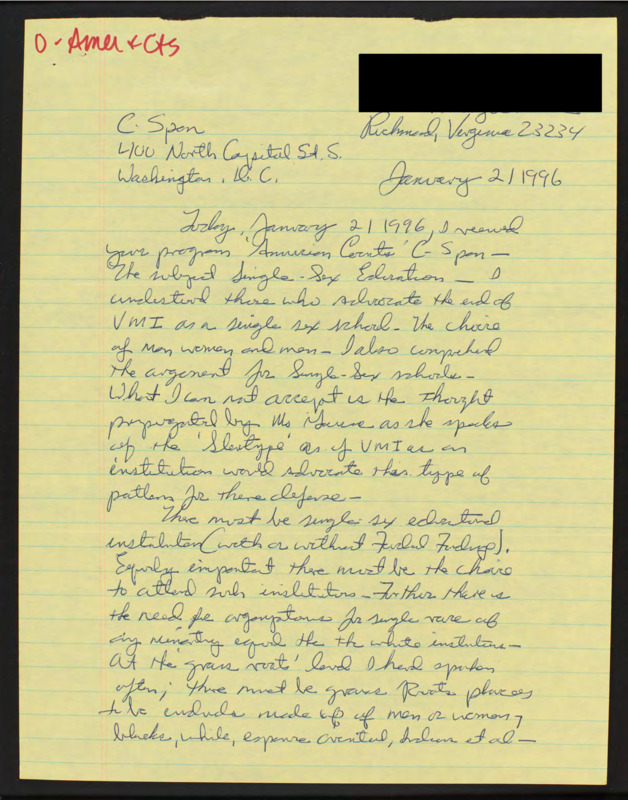 O - Amer + Cts
Richmond, Virginia 23234
C-Span
400 North Capital St. S.
Washington, D.C.
January 21 1996
Today, January 21 1996, I viewed
your program 'American Courts' C-Span -
The subject Single-Sex Education - I
understand those who advocate the end of
VMI as a single sex school - The choice
of women and men - I also
the argument for Single-Sex schools -
What I can not accept is the thought
by Ms as she speaks
of the ' ' as if VMI as an
institution would advocate this type of
pattern for there defense -
There must be single sex educational
institution (with or without Federal Funding).
Equally important there must be the choice
to attend such institutions - Further there is
the need for for single race of
any minority equal the the white institutions -
At the 'grass roots' level I have spoken
often; there must be grass Roots places
to be made up of men or women,
blacks, white, Indian et al -